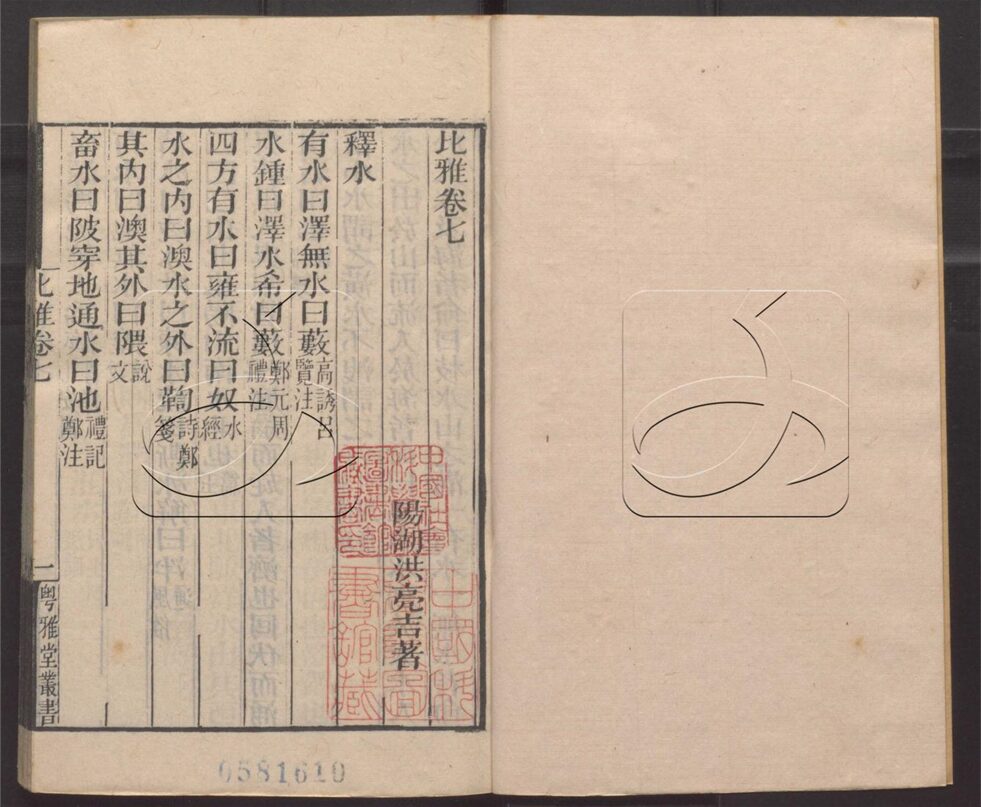 比雅卷七
陽湖洪亮吉著
釋水
有水曰澤無水曰藪高誘呂覽注
水鍾曰澤水希曰藪鄭元周禮注
四方有水曰雍不流曰奴水經
水之內曰澳水之外曰鞫詩鄭箋
其內曰澳其外曰隈說文
畜水曰陂穿地通水曰池禮記鄭注
比雅卷七
一
粤雅堂叢書
0581610